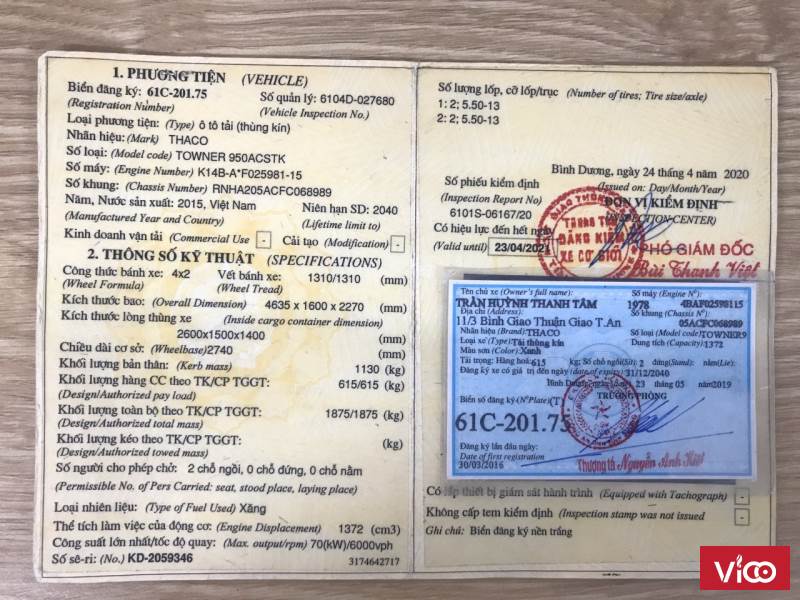 1. PHƯƠNG TIỆN (VEHICLE)
Biển đăng ký: 61C-201.75 Số quản lý: 6104D-027680
(Registration Number) (Vehicle Inspection No.)
Loại phương tiện: (Type) ô tô tải (thùng kín)
Nhãn hiệu: (Mark) THACO
Số loại: (Model code) TOWNER 950ACSTK
Số máy: (Engine Number) K14B-A*F025981-15
Số khung: (Chassis Number) RNHA205ACFC068989
Năm, Nước sản xuất: 2015, Việt Nam Niên hạn SD: 2040
(Manufactured Year and Country) (Lifetime limit to)
Kinh doanh vận tải (Commercial Use) - Cải tạo (Modification) -
2. THÔNG SỐ KỸ THUẬT (SPECIFICATIONS)
Công thức bánh xe: 4x2 Vết bánh xe: 1310/1310 (mm)
(Wheel Formula) (Wheel Tread)
Kích thước bao: (Overall Dimension) 4635 x 1600 x 2270 (mm)
Kích thước lòng thùng xe (Inside cargo container dimension)
2600x1500x1400 (mm)
Chiều dài cơ sở: (Wheelbase) 2740 (mm)
Khối lượng bản thân: (Kerb mass) 1130 (kg)
Khối lượng hàng CC theo TK/CP TGGT: 615/615 (kg)
(Design/Authorized pay load)
Khối lượng toàn bộ theo TK/CP TGGT: 1875/1875 (kg)
(Design/Authorized total mass)
Khối lượng kéo theo TK/CP TGGT: (kg)
(Design/Authorized towed mass)
Số người cho phép chở: 2 chỗ ngồi, 0 chỗ đứng, 0 chỗ nằm
(Permissible No. of Pers Carried: seat, stood place, laying place)
Loại nhiên liệu: (Type of Fuel Used) Xăng
Thể tích làm việc của động cơ: (Engine Displacement) 1372 (cm3)
Công suất lớn nhất/tốc độ quay: (Max. output/rpm) 70(kW)/6000vph
Số sê-ri: (No.) KD-2059346 3174642717
Số lượng lốp, cỡ lốp/trục (Number of tires; Tire size/axle)
1: 2; 5.50-13
2: 2; 5.50-13
Bình Dương, ngày 24 tháng 4 năm 2020
Số phiếu kiểm định (Issued on: Day/Month/Year)
(Inspection Report No) ĐƠN VỊ KIỂM ĐỊNH
6101S-06167/20 (INSPECTION CENTER)
Có hiệu lực đến hết ngày
(Valid until) 23/04/2021
TRUNG TÂM
ĐĂNG KIỂM
XE CƠ GIỚI
PHÓ GIÁM ĐỐC
Bùi Thanh Việt
Tên chủ xe (Owner's full name): Số máy (Engine Nº):
TRẦN HUỲNH THANH TÂM 1978 4BAF02598115
Địa chỉ (Address): Số khung (Chassis Nº):
11/3 Bình Giao Thuận Giao T.An 05ACFC068989
Nhãn hiệu (Brand): THACO Số loại (Model code) TOWNER9
Loại xe (Type) Tải thùng kín Dung tích (Capacity) 1372
Màu sơn (Color): Xanh
Tải trọng: Hàng hoá: 615 kg; Số chỗ ngồi (Sit): 2 đứng (Stand): nằm (Lie)
Đăng ký xe có giá trị đến ngày (date of expiry) 31/12/2040
23 tháng 05 năm 2019
Biển số đăng ký (NºPlate) (T) TRƯỞNG PHÒNG
61C-201.75
Đăng ký lần đầu ngày:
Date of first registration
30/03/2016 Thượng tá Nguyễn Anh Kiệt
Có lắp thiết bị giám sát hành trình (Equipped with Tachograph) -
Không cấp tem kiểm định (Inspection stamp was not issued) -
Ghi chú: Biển đăng ký nền trắng
VICO